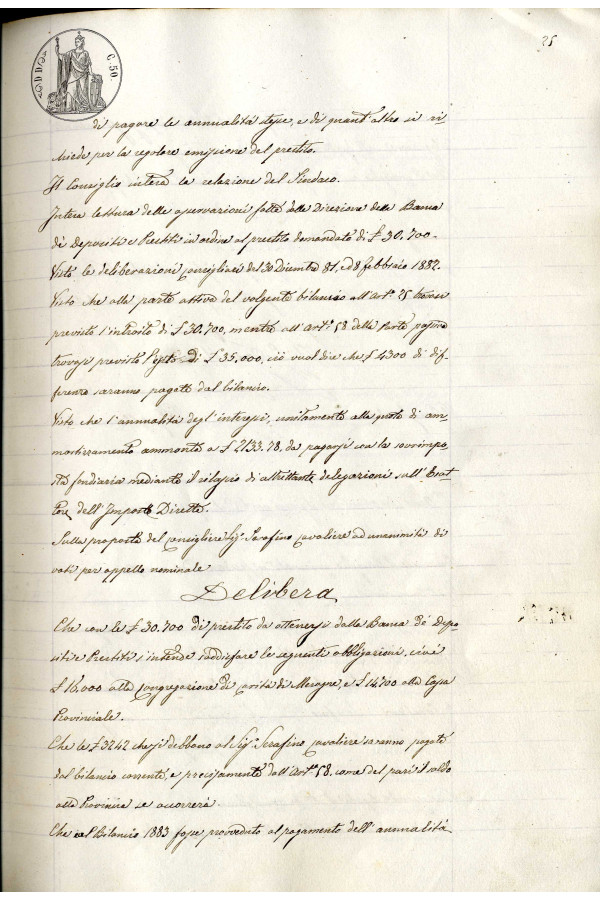 25
C. 50.
di pagare le annualità stesse, e di quant'altro si ri-
chiede per la regolare emissione del prestito.
Il Consiglio intesa la relazione del Sindaco.
Intesa lettura delle osservazioni fatte dalla Direzione della Banca
dè Depositi e Prestiti in ordine al prestito domandato di £ 30.700-
Viste le deliberazioni consigliari del 30 Dicembre 81, ed 8 febbraio 1882.
Visto che alla parte attiva del volgente bilancio all'Art.° 25 trovasi
previsto l'introito di £ 30.700, mentre all'art.° 58 della Parte passiva
trovasi previsto l'esito di £ 35.000, ciò vuol dire che £ 4300 di dif-
ferenza saranno pagate dal bilancio.
Visto che l'annualità degl'interessi, unitamente alla quota di am-
mortizzamento ammonta a £ 2133.78, da pagarsi con la sovrimpo-
sta fondiaria mediante il rilascio di altrettante delegazioni sull'Esat-
tore dell'Imposte Dirette.
Sulla proposta del consigliere Sig.r Serafino Cavaliere ad unanimità di
voti per appello nominale
Delibera
Che con le £ 30.700 di prestito da ottenersi dalla Banca dè Depo-
siti e Prestiti s'intende soddisfare le seguenti obbligazioni, cioè
£ 16.000 alla Congregazione di carità di Mesagne, e £ 14.700 alla Cassa
Provinciale.
Che le £ 3242 che si debbono al Sig.r Serafino Cavaliere saranno pagate
dal bilancio corrente, e precisamente dall'Art.° 58, come del pari il saldo
alla Provincia se occorrerà
Che al Bilancio 1883 fosse provveduto al pagamento dell'annualità